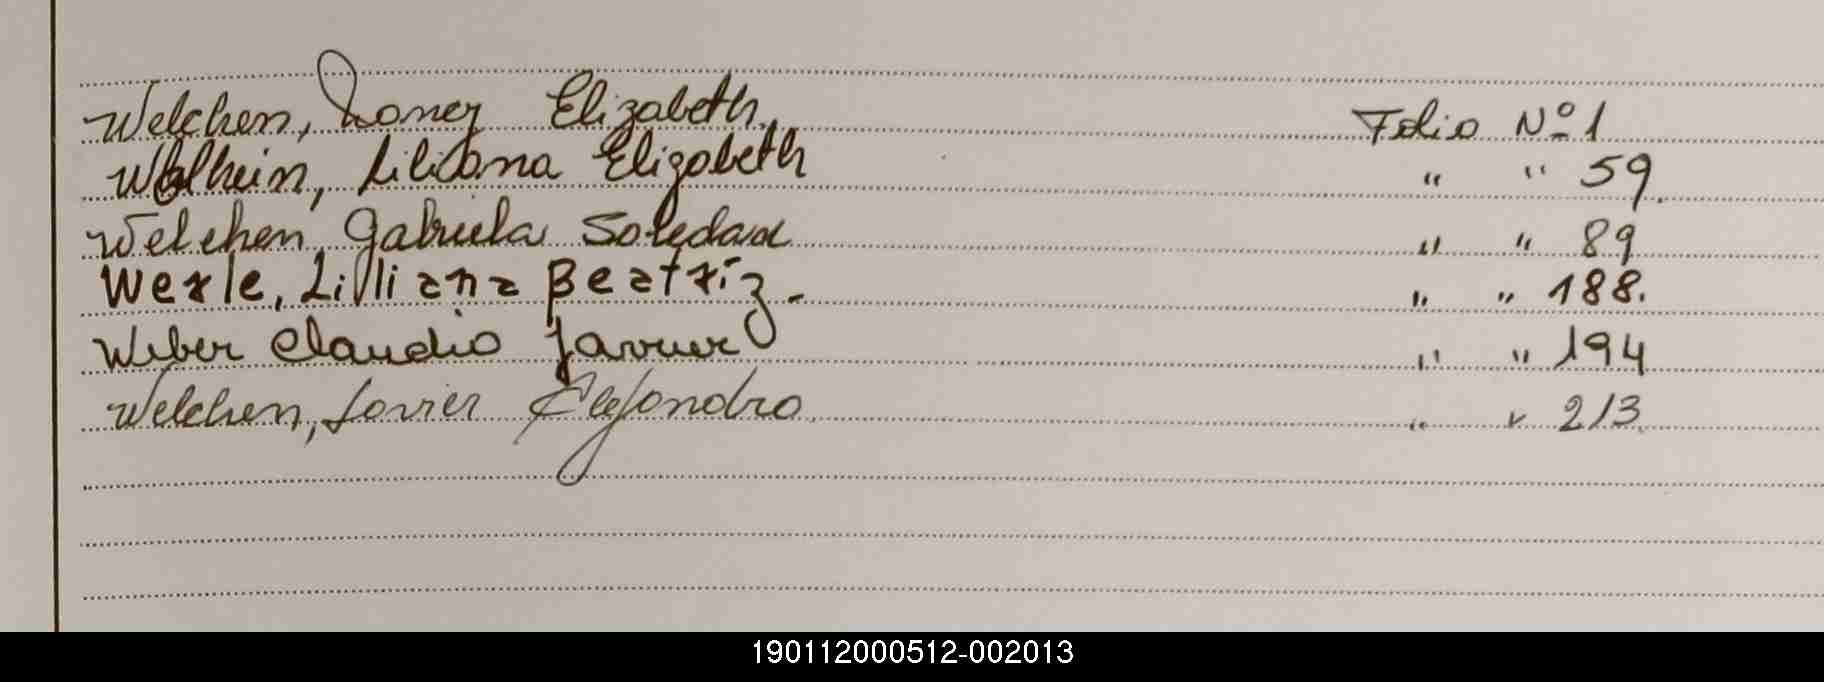 Welchen, Nancy Elizabeth. Folio Nº 1
Wolhein, Liliana Elizabeth " " 59.
Welchen, Gabriela Soledad " " 89
Wexle, Lilliana Beatriz.- " " 188.
Weber Claudio Javier " " 194
Welchen, Javier Alejandro. " " 213.
190112000512-002013